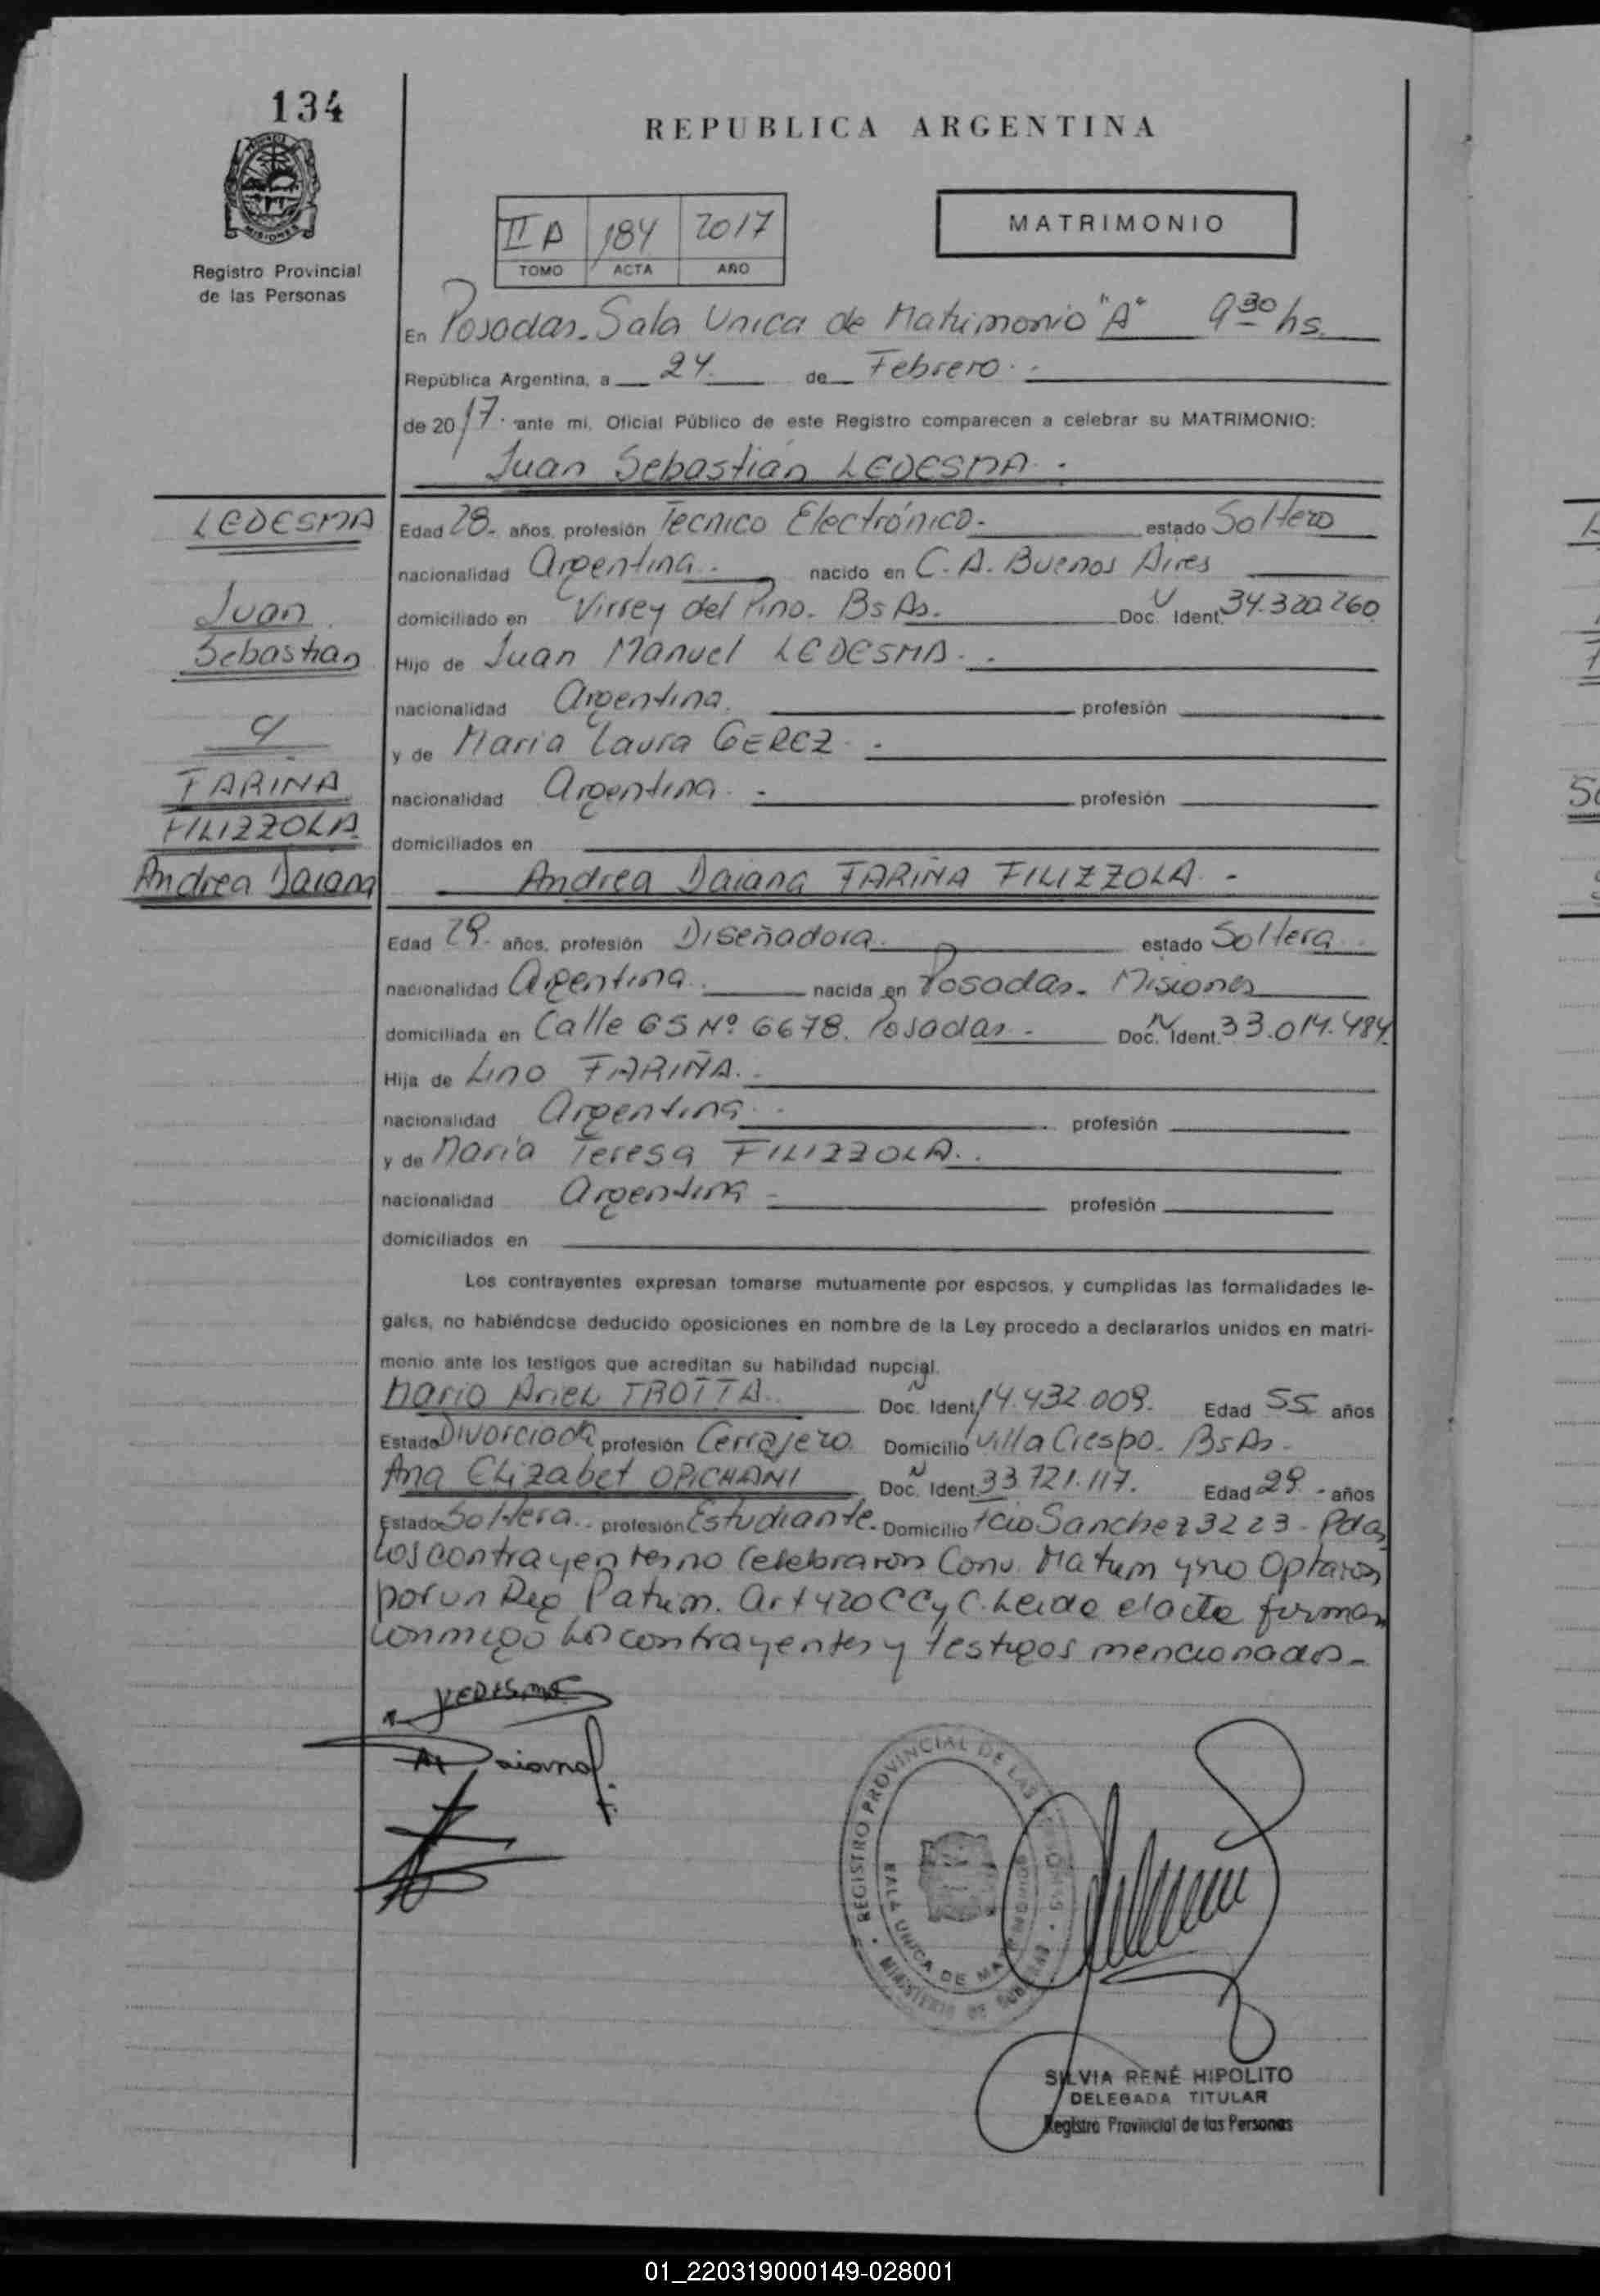 134
REPUBLICA ARGENTINA
MISIONES
Registro Provincial
de las Personas
II A 184 2017
TOMO ACTA AÑO
MATRIMONIO
En Posadas. Sala Unica de Matrimonio "A" 9 30 hs.
República Argentina, a 24 de Febrero
de 2017 ante mí, Oficial Público de este Registro comparecen a celebrar su MATRIMONIO:
Juan Sebastián LEDESMA
LEDESMA
Juan
Sebastian
y
FARIÑA
FILIZZOLA
Andrea Daiana
Edad 28 años, profesión Tecnico Electrónico estado Soltero
nacionalidad Argentina nacido en C. A. Buenos Aires
domiciliado en Virrey del Pino. Bs As. Doc. Ident. 34.320.260
Hijo de Juan Manuel LEDESMA
nacionalidad Argentina profesión
y de Maria Laura GEREZ
nacionalidad Argentina profesión
domiciliados en
Andrea Daiana FARIÑA FILIZZOLA
Edad 29 años, profesión Diseñadora estado Soltera
nacionalidad Argentina nacida en Posadas. Misiones
domiciliada en Calle Nº 6678. Posadas Doc. Ident. 33.014.484
Hija de Lino FARIÑA
nacionalidad Argentina profesión
y de Maria Teresa FILIZZOLA
nacionalidad Argentina profesión
domiciliados en
Los contrayentes expresan tomarse mutuamente por esposos, y cumplidas las formalidades le-
gales, no habiéndose deducido oposiciones en nombre de la Ley procedo a declararlos unidos en matri-
monio ante los testigos que acreditan su habilidad nupcial.
Mario Ariel TROTTA Doc. Ident. 14.432.009. Edad 55 años
Estado Divorciado profesión Cerrajero Domicilio Villa Crespo. Bs As
Ana Elizabet OPICHANI Doc. Ident. 33 721.117. Edad 29 años
Estado Soltera profesión Estudiante Domicilio Fcio Sanchez 3223 - Pdas
Los contrayentes no Celebraron Conv. Matrim y no Optaron
por un Reg Patrim. Art 420 CCyC. Leida el acta firman
conmigo los contrayentes y testigos mencionados
LEDESMA
Daiana
REGISTRO PROVINCIAL DE LAS PERSONAS
SALA UNICA DE MATRIMONIOS
MINISTERIO DE GOBIERNO
SILVIA RENÉ HIPOLITO
DELEGADA TITULAR
Registro Provincial de las Personas
01_220319000149-028001